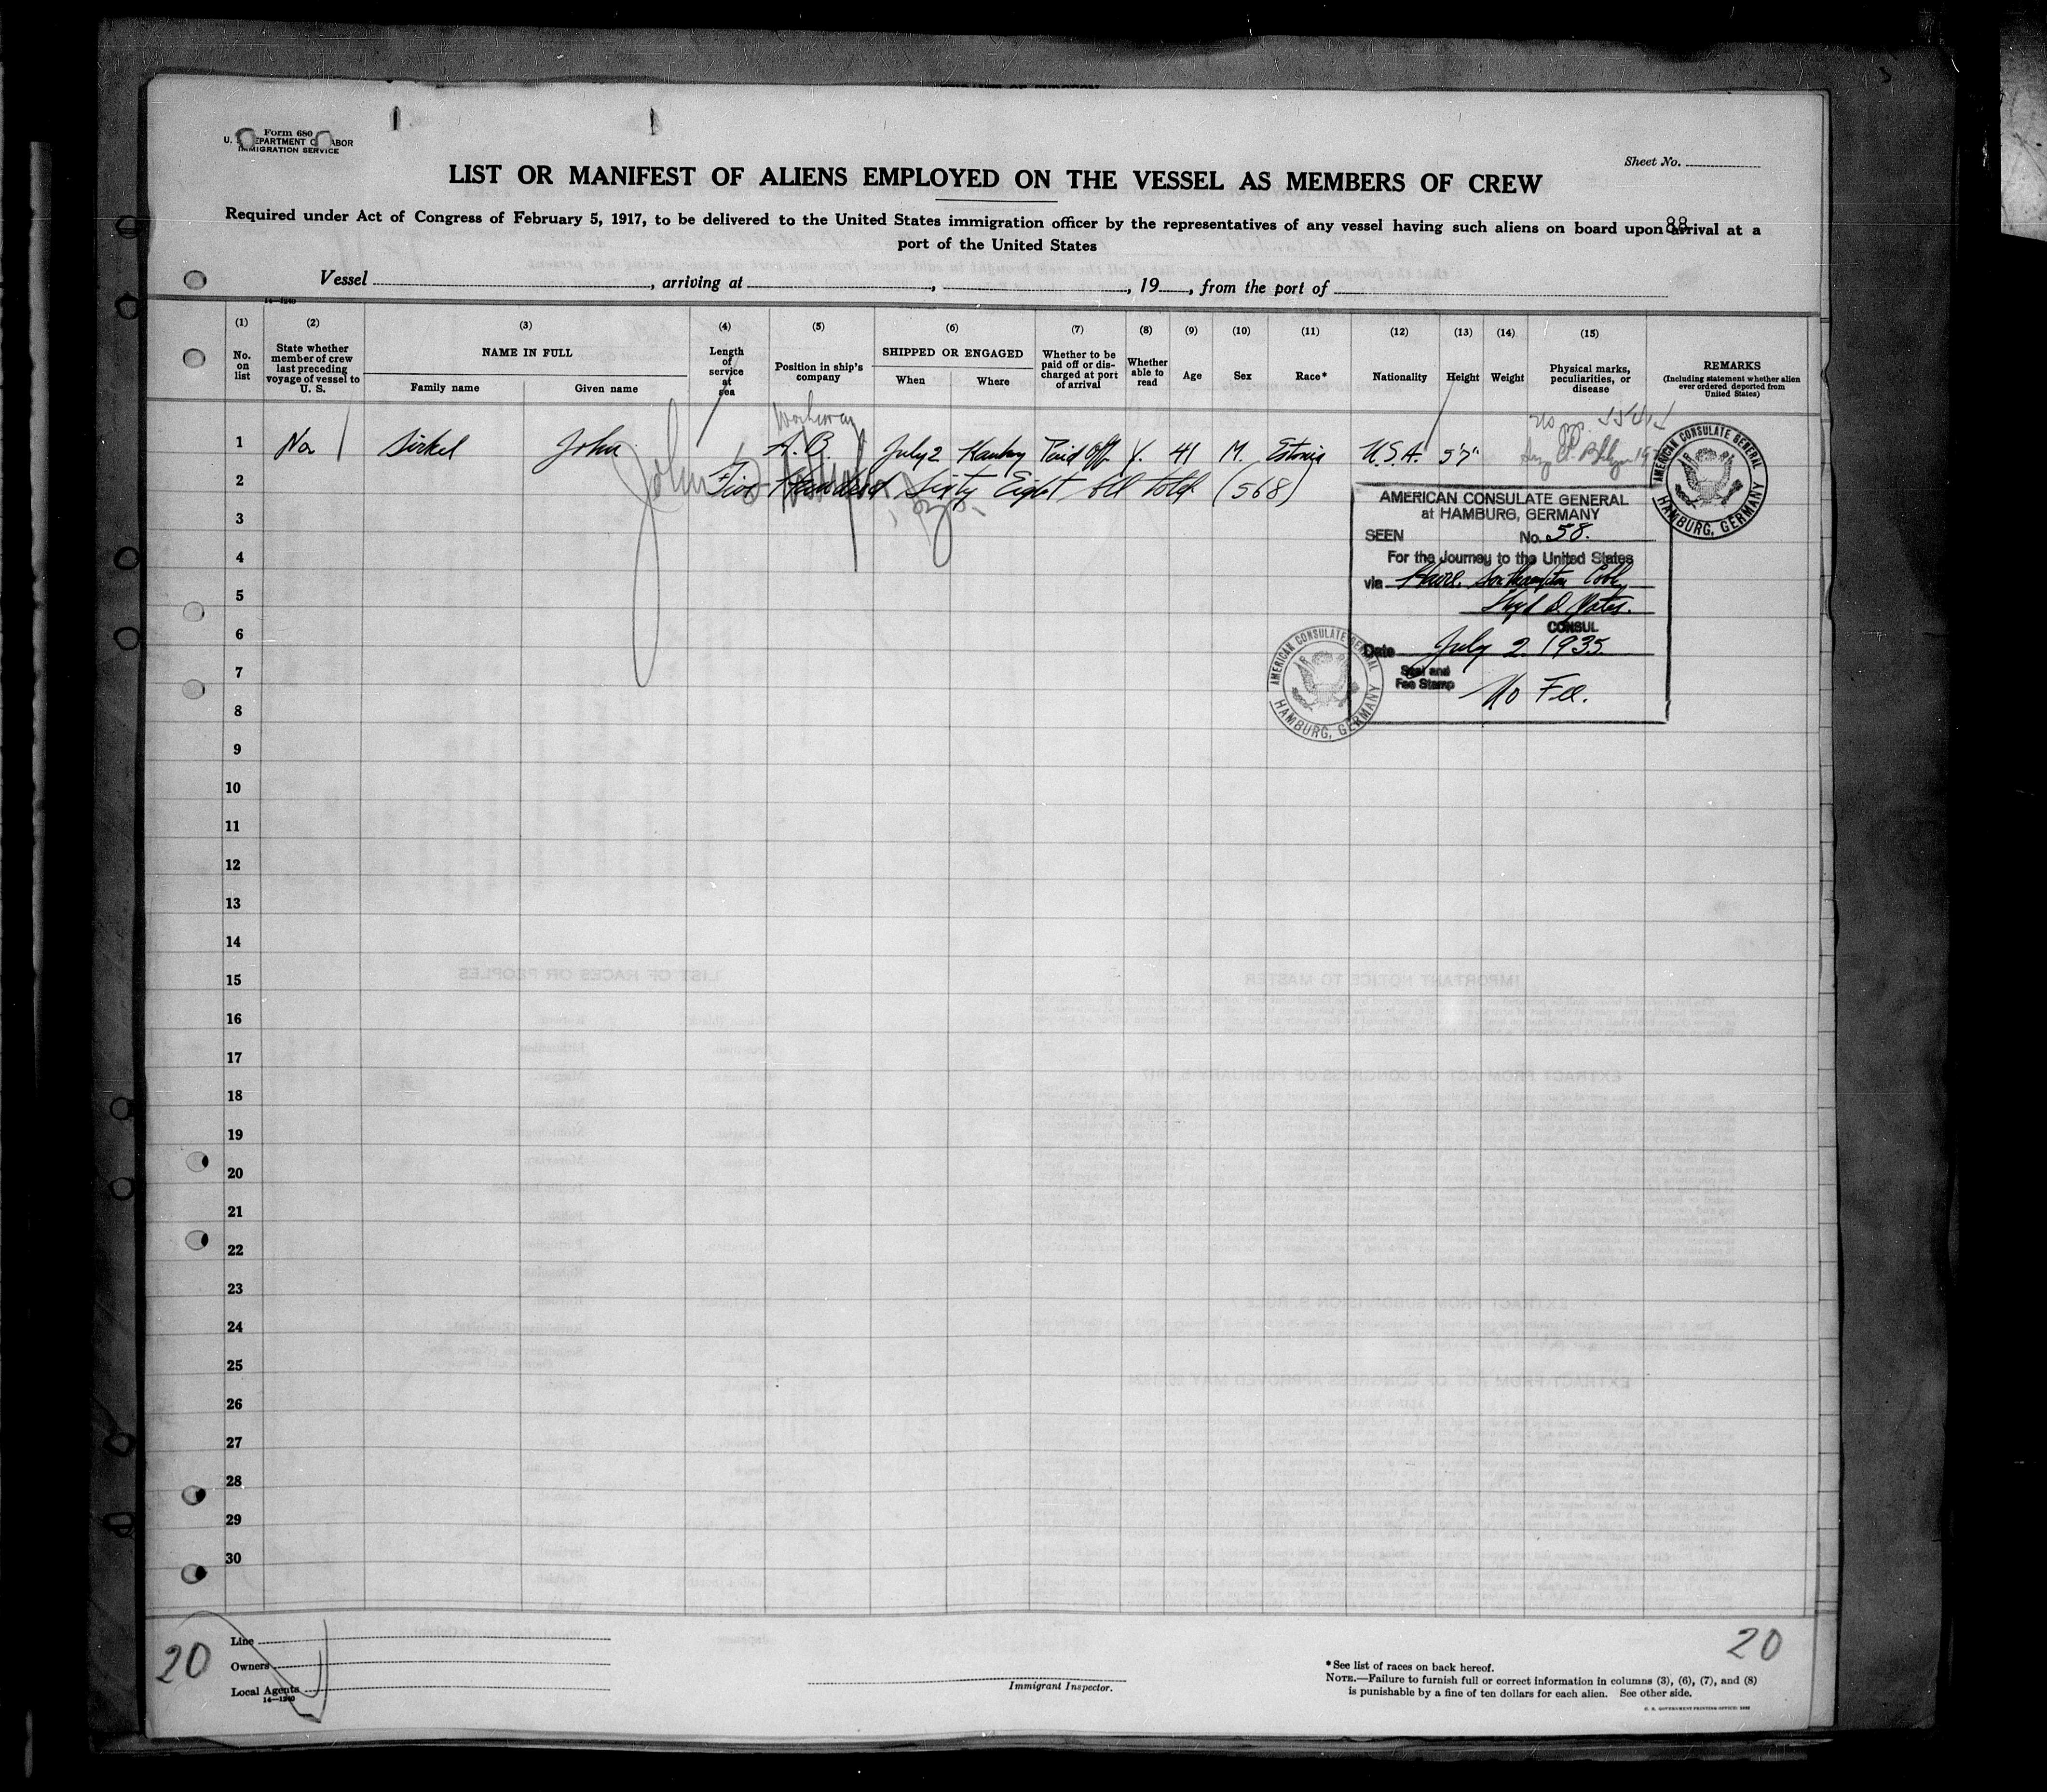 Form 680
U. S. DEPARTMENT OF LABOR
IMMIGRATION SERVICE
Sheet No.
LIST OR MANIFEST OF ALIENS EMPLOYED ON THE VESSEL AS MEMBERS OF CREW
Required under Act of Congress of February 5, 1917, to be delivered to the United States immigration officer by the representatives of any vessel having such aliens on board upon arrival at a
88
port of the United States
Vessel , arriving at , , 19 , from the port of
14—1240
(1) (2) (3) (4) (5) (6) (7) (8) (9) (10) (11) (12) (13) (14) (15)
No. on list
State whether member of crew last preceding voyage of vessel to U. S.
NAME IN FULL
Family name Given name
Length of service at sea
Position in ship's company
SHIPPED OR ENGAGED
When Where
Whether to be paid off or discharged at port of arrival
Whether able to read
Age
Sex
Race*
Nationality
Height
Weight
Physical marks, peculiarities, or disease
REMARKS
(Including statement whether alien ever ordered deported from United States)
Workaway
1 No Sirkel John A.B. July 2 Hambg Paid Off Y. 41 M. Estonia U.S.A. 5'7"
2 Five Hundred Sixty Eight all told (568)
John
3
4
5
6
7
8
9
10
11
12
13
14
15
16
17
18
19
20
21
22
23
24
25
26
27
28
29
30
AMERICAN CONSULATE GENERAL
HAMBURG, GERMANY
AMERICAN CONSULATE GENERAL
at HAMBURG, GERMANY
SEEN No. 58.
For the Journey to the United States
via Havre, Southampton Cobh
CONSUL
Date July 2 1935.
Seal and
Fee Stamp No Fee.
AMERICAN CONSULATE GENERAL
HAMBURG, GERMANY
20
Line
Owners
Local Agents
14—1240
Immigrant Inspector.
20
*See list of races on back hereof.
NOTE.—Failure to furnish full or correct information in columns (3), (6), (7), and (8)
is punishable by a fine of ten dollars for each alien. See other side.